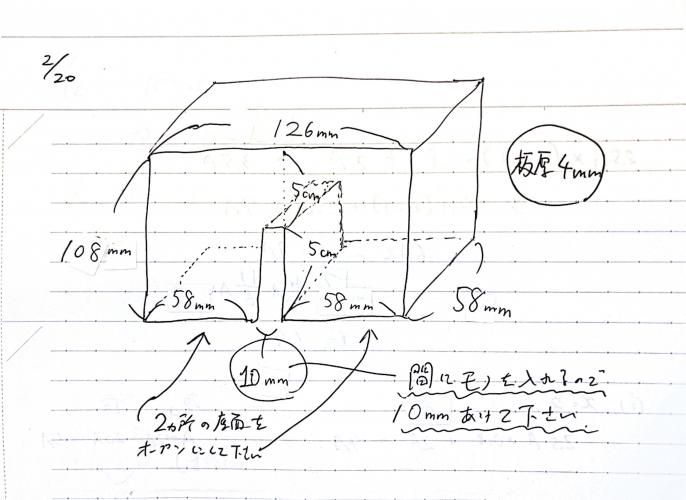 2/20
126mm
板厚4mm
5cm
5cm
108mm
58mm
58mm
58mm
10mm
間にモノを入れるので
10mmあけて下さい
2ヵ所の底面を
オープンにして下さい